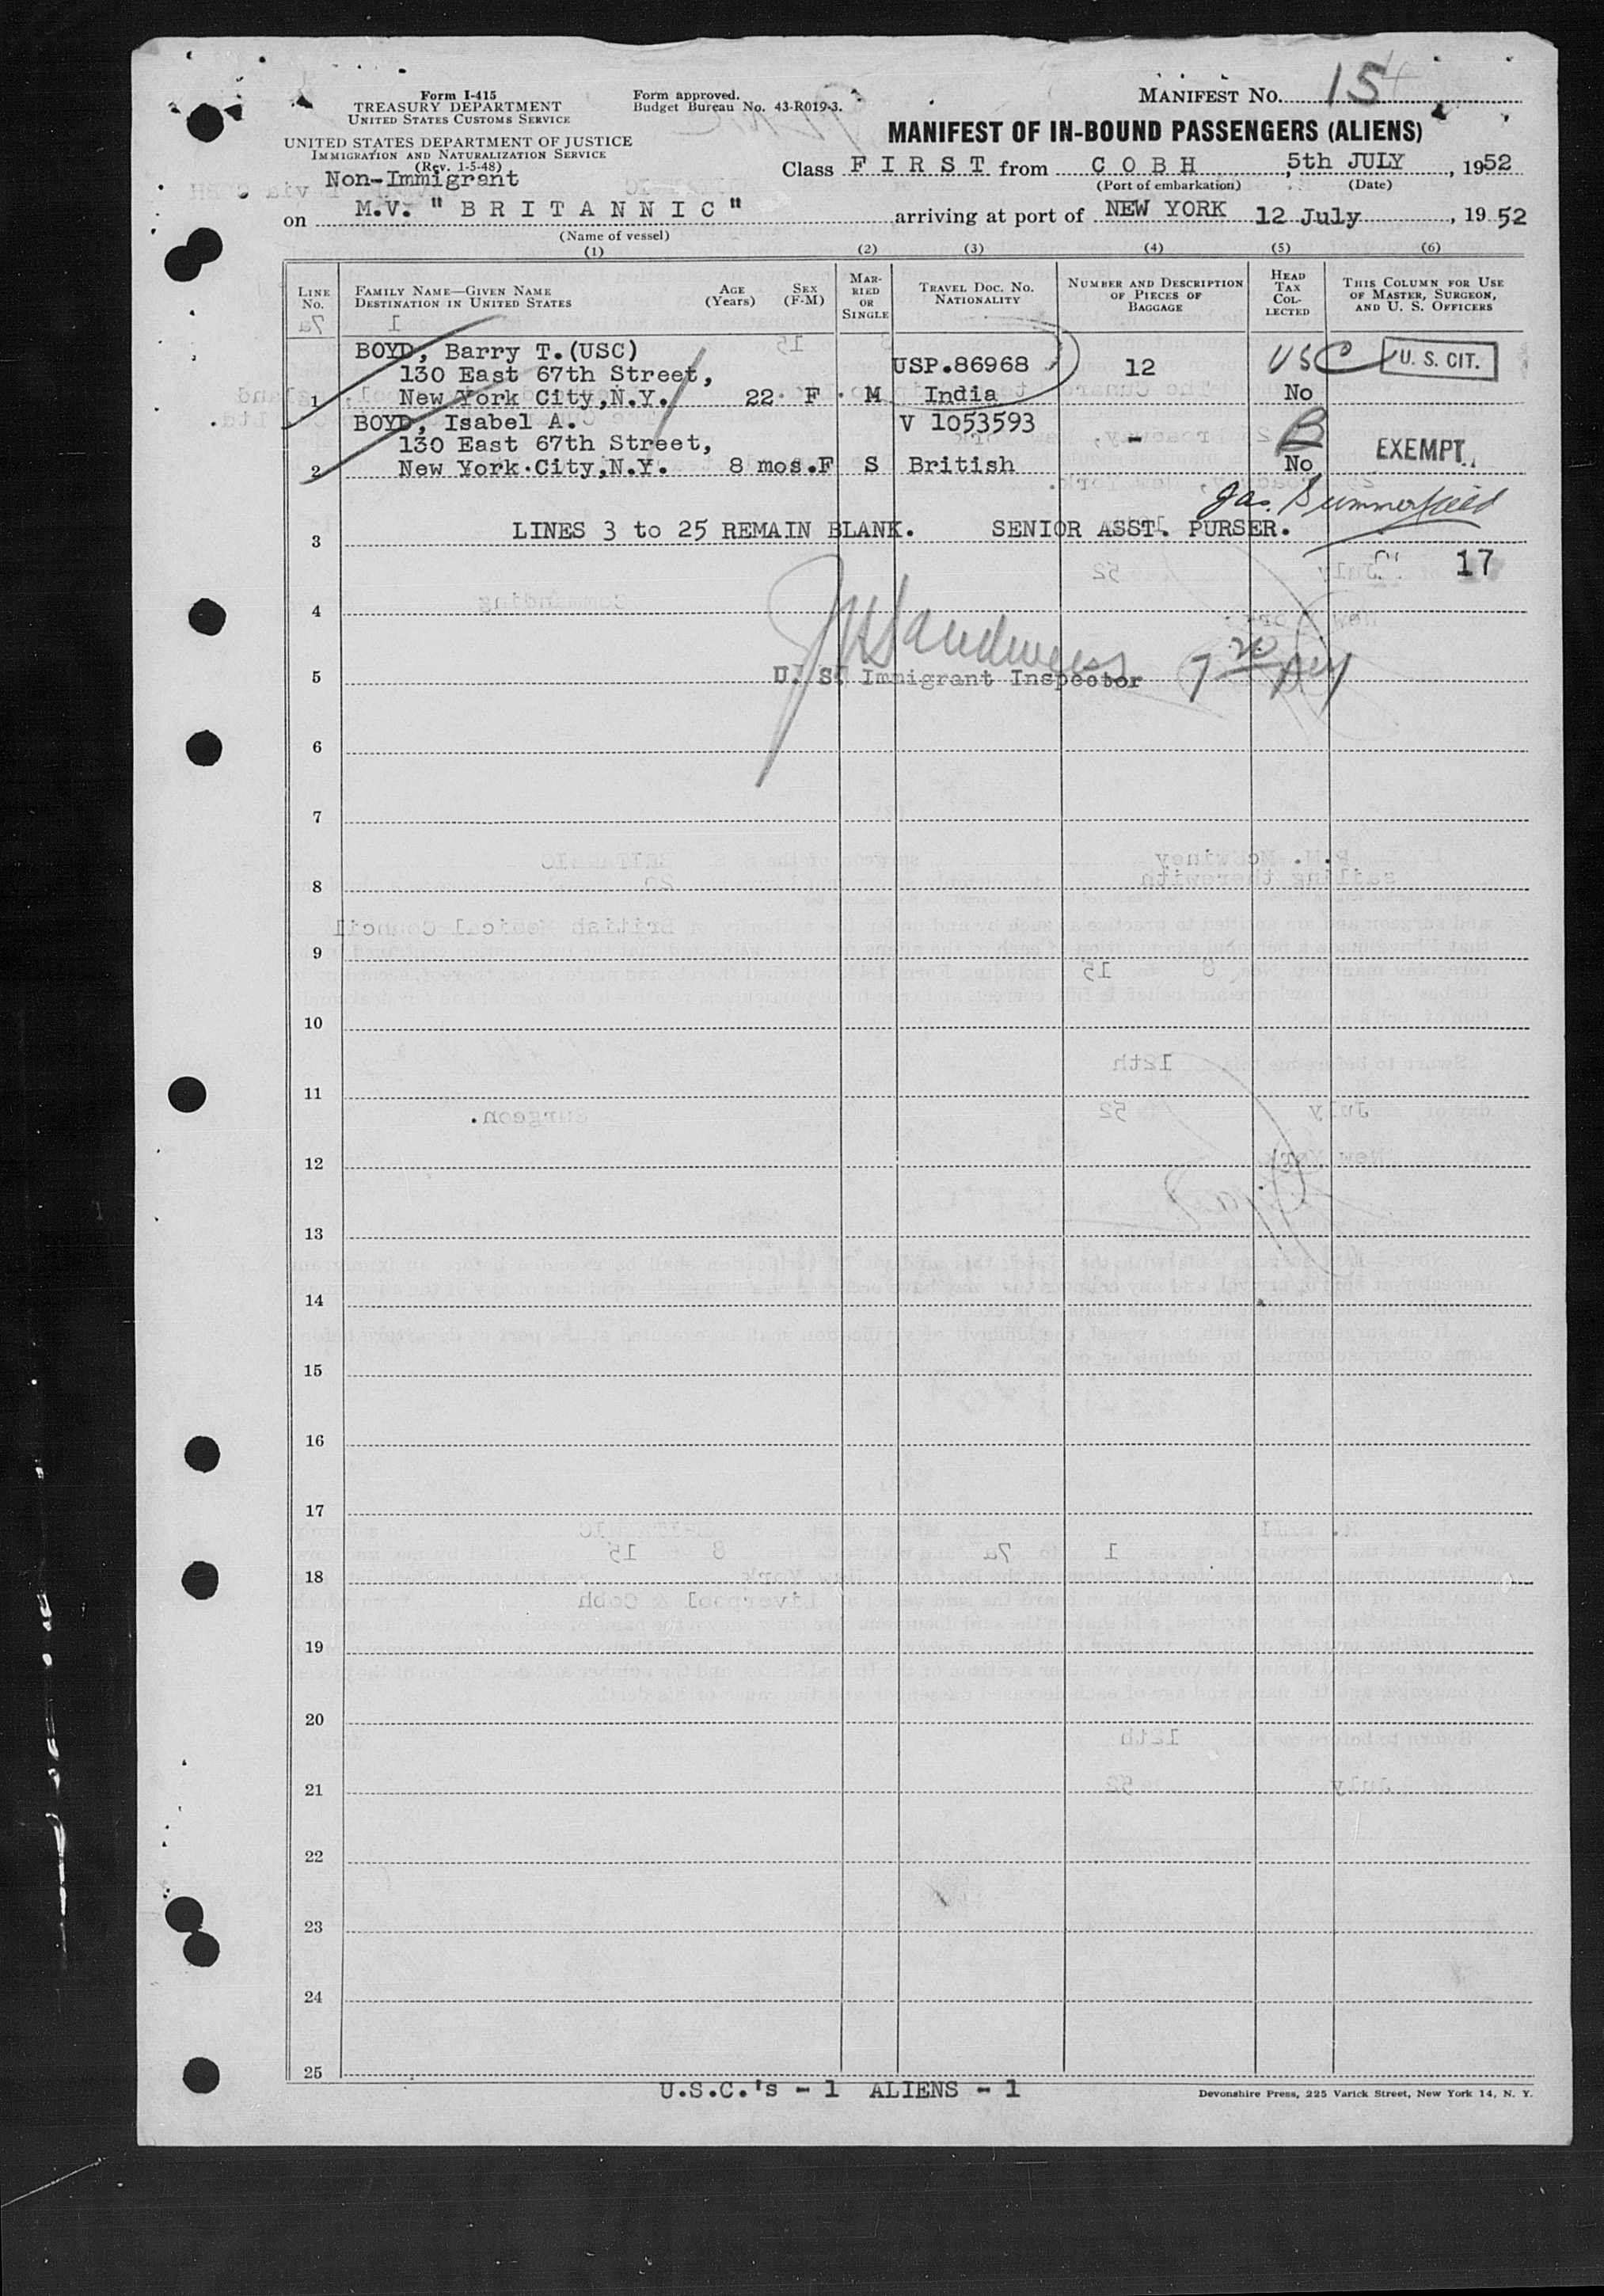 Form I-415
TREASURY DEPARTMENT
UNITED STATES CUSTOMS SERVICE
UNITED STATES DEPARTMENT OF JUSTICE
IMMIGRATION AND NATURALIZATION SERVICE
(Rev. 1-5-48)
Non-Immigrant
Form approved.
Budget Bureau No. 43-R019-3.
MANIFEST No. 15
MANIFEST OF IN-BOUND PASSENGERS (ALIENS)
Class F I R S T from C O B H, 5th JULY, 1952
(Port of embarkation) (Date)
on M.V. "B R I T A N N I C" arriving at port of NEW YORK 12 July, 1952
(Name of vessel)
(1) (2) (3) (4) (5) (6)
LINE No.
FAMILY NAME—GIVEN NAME
DESTINATION IN UNITED STATES
AGE (Years)
SEX (F-M)
MARRIED OR SINGLE
TRAVEL DOC. NO.
NATIONALITY
NUMBER AND DESCRIPTION OF PIECES OF BAGGAGE
HEAD TAX COLLECTED
THIS COLUMN FOR USE OF MASTER, SURGEON, AND U. S. OFFICERS
BOYD, Barry T.(USC)
130 East 67th Street, USP.86968 12 USC U. S. CIT.
1 New York City,N.Y. 22 F M India No
BOYD, Isabel A. V 1053593
130 East 67th Street, - B EXEMPT.
2 New York City,N.Y. 8 mos.F S British No
Jas. Summerfield
3 LINES 3 to 25 REMAIN BLANK. SENIOR ASST. PURSER.
17
4
5 U. S. Immigrant Inspector
6
7
8
9
10
11
12
13
14
15
16
17
18
19
20
21
22
23
24
25
U.S.C.'s - 1 ALIENS - 1
Devonshire Press, 225 Varick Street, New York 14, N. Y.